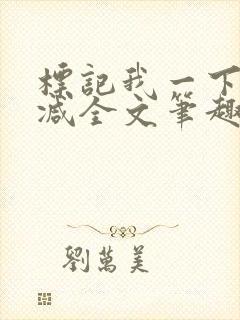 標記我一下
減全文筆趣
劉萬美